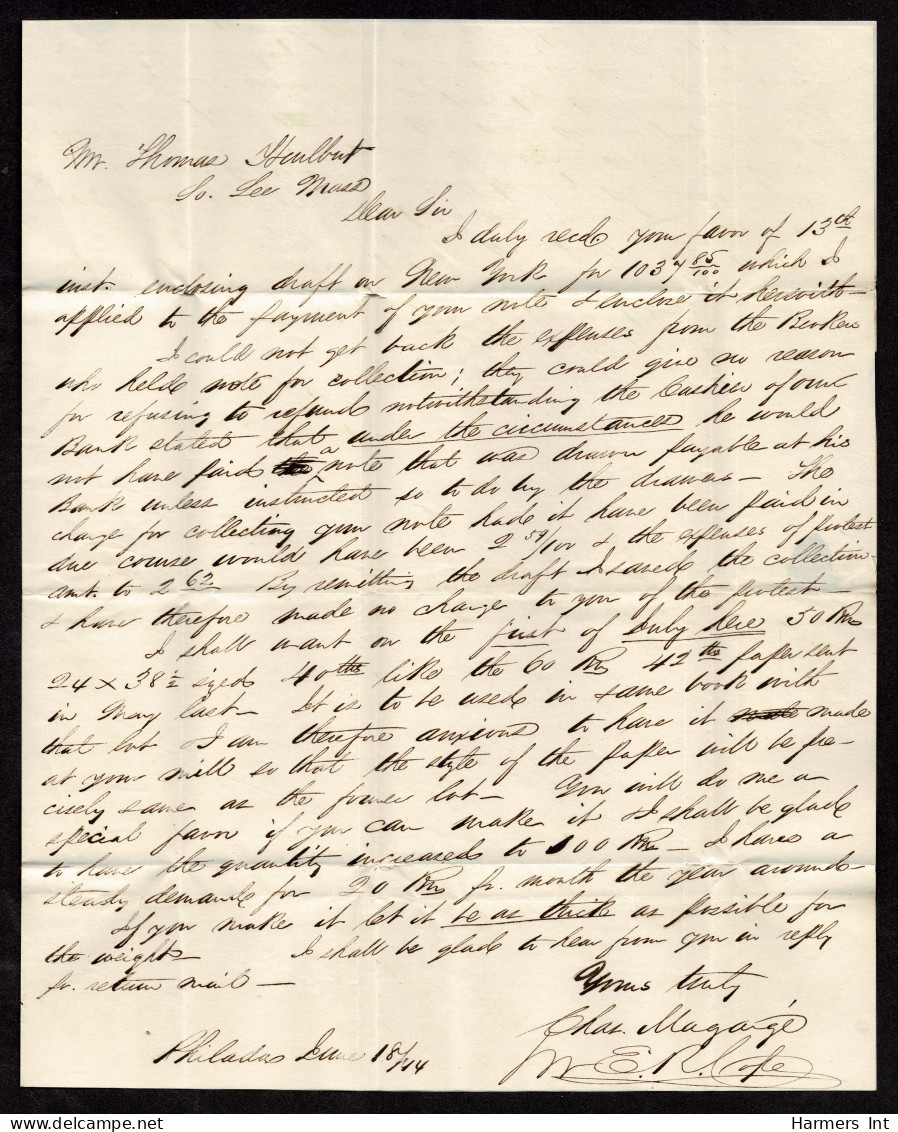 Mr. Thomas Hurlbut
So. Lee Mass
Dear Sir
I duly recd. your favor of 13th
inst. enclosing draft on New York for 1037 85/100 which I
applied to the payment of your note & enclose it herewith—
I could not get back the expenses from the Broker
who held note for collection; they could give no reason
for refusing to refund notwithstanding the Cashier of our
Bank stated that under the circumstances he would
not have paid a note that was drawn payable at his
Bank unless instructed so to do by the drawer— The
charge for collecting your note had it have been paid in
due course would have been 2 59/100 & the expenses of protest
amt. to 2 62 By remitting the draft I saved the collection
& have therefore made no charge to you of the protest—
I shall want on the first of July here 50 Rms
24 x 38 1/2 sized 40 lbs like the 60 Rms 42 lbs paper sent
in May last— It is to be used in same book with
that lot & I am therefore anxious to have it made
at your mill so that the style of the paper will be pre-
cisely same as the former lot— You will do me a
special favor if you can make it & I shall be glad
to have the quantity increased to 100 Rms— I have a
steady demand for 20 Rms pr. month the year around—
If you make it let it be as thick as possible for
the weight— I shall be glad to hear from you in reply
pr. return mail—
Yours truly
Chas. Magargé
E. R. Cope
Philada June 18/44
Harmers Int